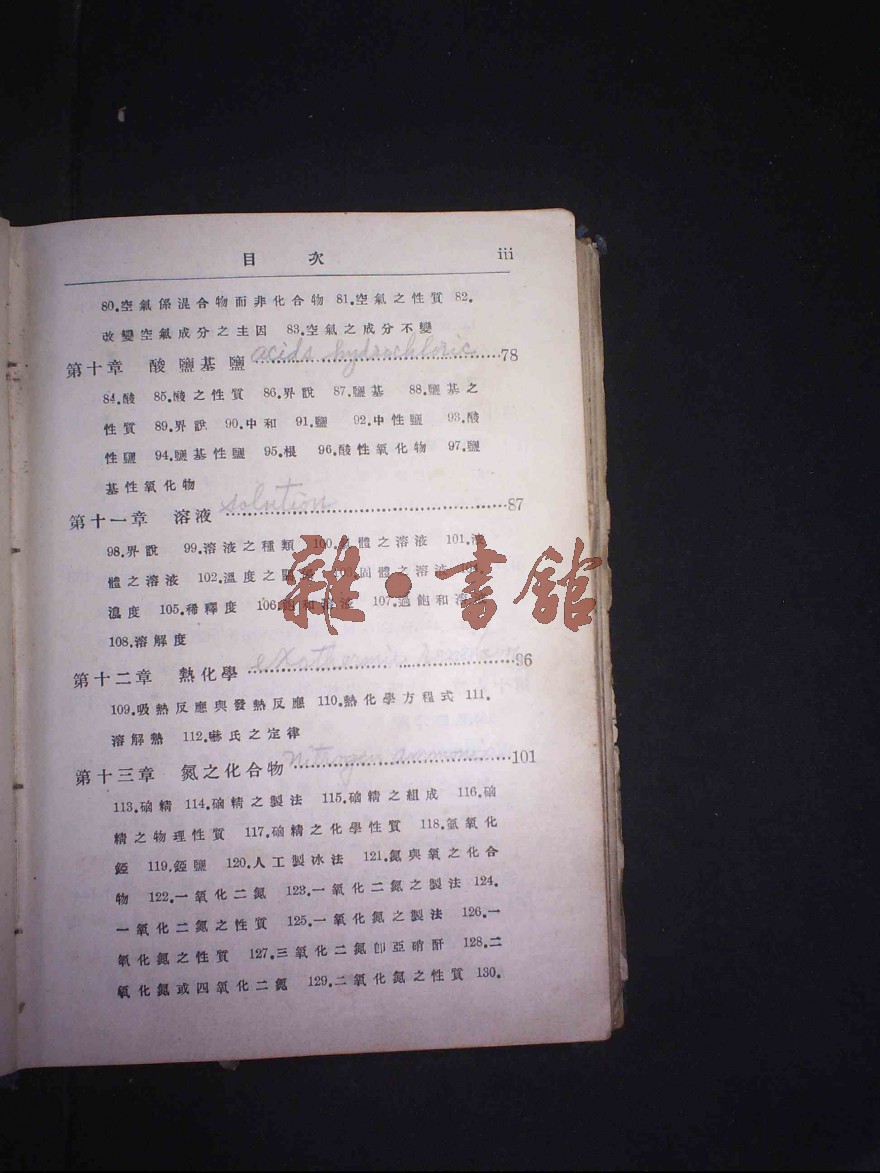 目 次 iii
80.空氣係混合物而非化合物 81.空氣之性質 82.
改變空氣成分之主因 83.空氣之成分不變
第十章 酸鹽基鹽 acids hydrochloric 78
84.酸 85.酸之性質 86.界說 87.鹽基 88.鹽基之
性質 89.界說 90.中和 91.鹽 92.中性鹽 93.酸
性鹽 94.鹽基性鹽 95.根 96.酸性氧化物 97.鹽
基性氧化物
第十一章 溶液 solution 87
98.界說 99.溶液之種類 100. 體之溶液 101.
體之溶液 102.溫度之 固體之溶液
濃度 105.稀釋度 106. 和溶液 107.過飽和溶液
雜·書館
108.溶解度
第十二章 熱化學 96
109.吸熱反應與發熱反應 110.熱化學方程式 111.
溶解熱 112.嚇氏之定律
第十三章 氮之化合物 nitrogen ammonia 101
113.硇精 114.硇精之製法 115.硇精之組成 116.硇
精之物理性質 117.硇精之化學性質 118.氫氧化
銨 119.銨鹽 120.人工製冰法 121.氮與氧之化合
物 122.一氧化二氮 123.一氧化二氮之製法 124.
一氧化二氮之性質 125.一氧化氮之製法 126.一
氧化氮之性質 127.三氧化二氮卽亞硝酐 128.二
氧化氮或四氧化二氮 129.二氧化氮之性質 130.